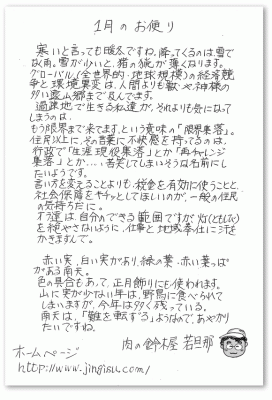 1月のお便り
寒いと言っても暖冬ですね。降ってくるのは雪で
なく雨。雪が少いと、猪の脂が薄くなります。
グローバル(全世界的・地球規模)の経済競
争と環境異変は、人間よりも獣や神様の
多い農山郷まで及んでます。
過疎地で生きる私達が、それよりも気になって
しまうのは、
もう限界まで来てます、という意味の「限界集落」。
住民以上に、その言葉に不快感を持ってるのは、
行政で「生涯現役集落」とか「再チャレンジ
集落」とか…、苦笑してしまいそうな名前にし
たいようです。
言い方を変えることよりも、税金を有効に使うことと、
社会保障をキチッとしてほしいのが、一般の住民
の気持ちだに。
オラ達は、自分のできる範囲ですが、灯(ともしび)
を絶やさないように、仕事と地域奉仕に汗を
かきますんで。
赤い実、白い実があり、緑の葉、赤い葉っぱ
がある南天。
色の具合もあって、正月飾りにも使われます。
山に実が少ない年は、野鳥に食べられて
しまいますが、今年は多く残っている。
南天は、「難を転ずる」ようなので、あやかり
たいですね。
肉の鈴木屋 若旦那
ホームページ
http://www.jingisu.com/